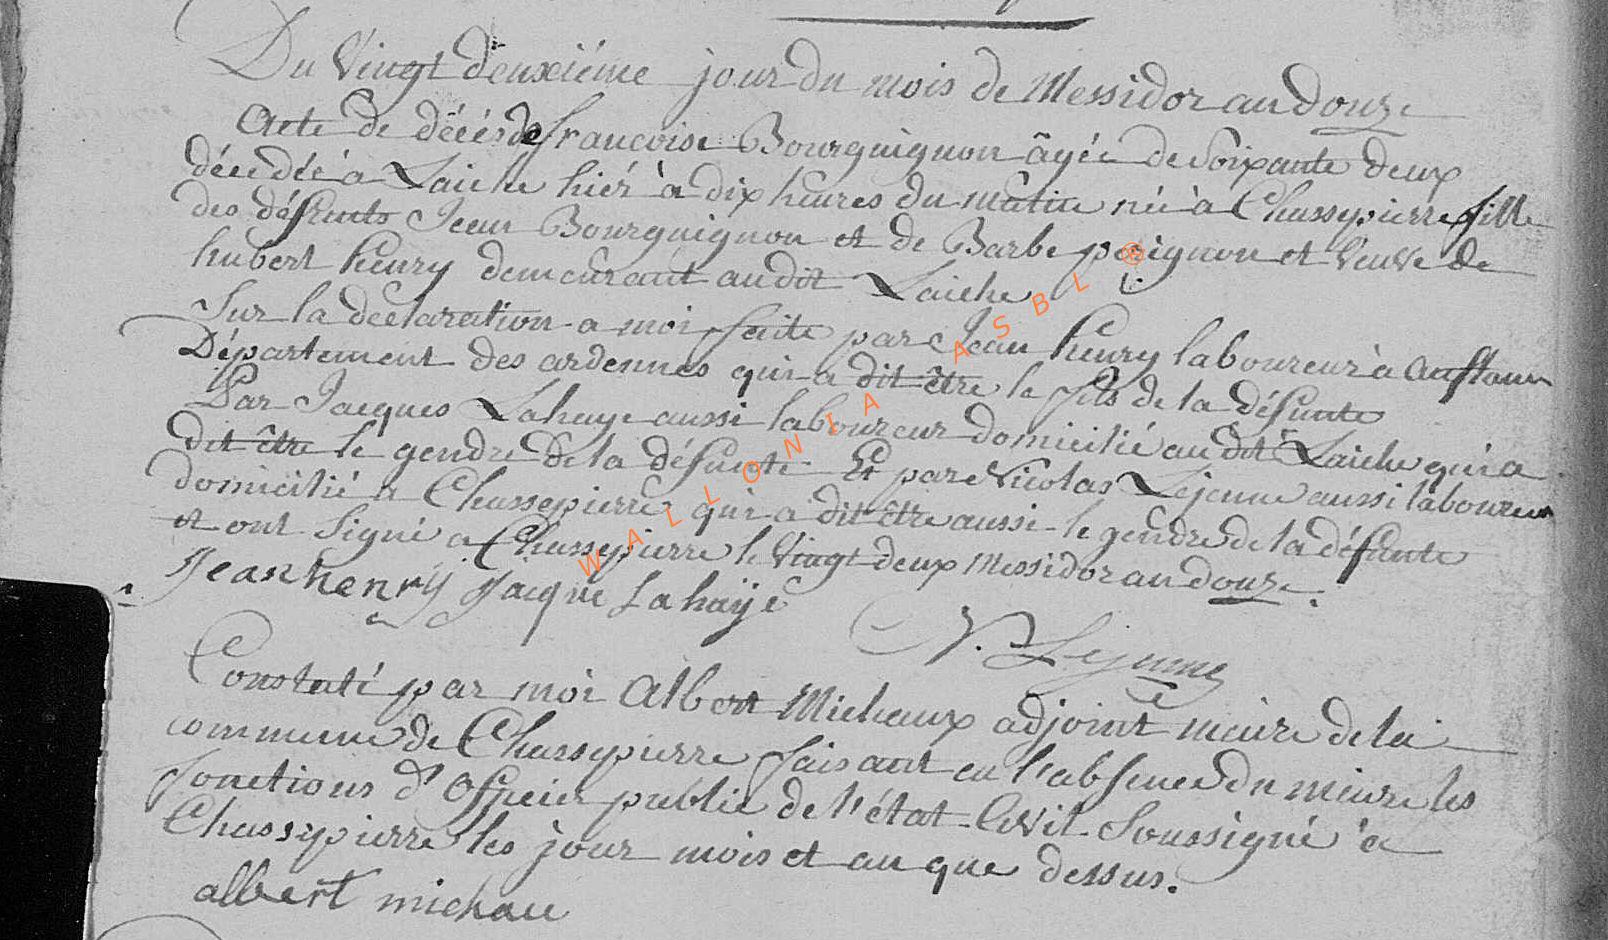 Du Vingt deuxiéme jour du mois de Messidor an douze
Acte de décés de francoise Bourguignon âgée de Soixante deux
décédée a Laiche hiér à dix heures du matin née à Chassepierre fille
des défunts Jean Bourguignon et de Barbe perignon et Veuve de
hubert henry demeurant audit Laiche
Sur la declaration a moi faite par Jean henry laboureur à
Département des ardennes qui a dit être le fils de la défunte
Par Jacques Lahaye aussi laboureur domicilié au dit Laiche qui a
dit être le gendre de la défunte Et par Nicolas Lejeune aussi laboureur
domicilié a Chassepierre qui a dit être aussi le gendre de la défunte
et ont Signé a Chassepierre le Vingt deux Messidor an douze.
Jean henry Jacque Lahaÿe
N. Lejeune
Constaté par moi Albert Michaux adjoint maire de la
commune de Chassepierre faisant en l'absence du maire les
fonctions d'officier public de l'état Civil Soussigné à
Chassepierre les jour mois et an que dessus.
albert michau
WALLONIA ASBL ®